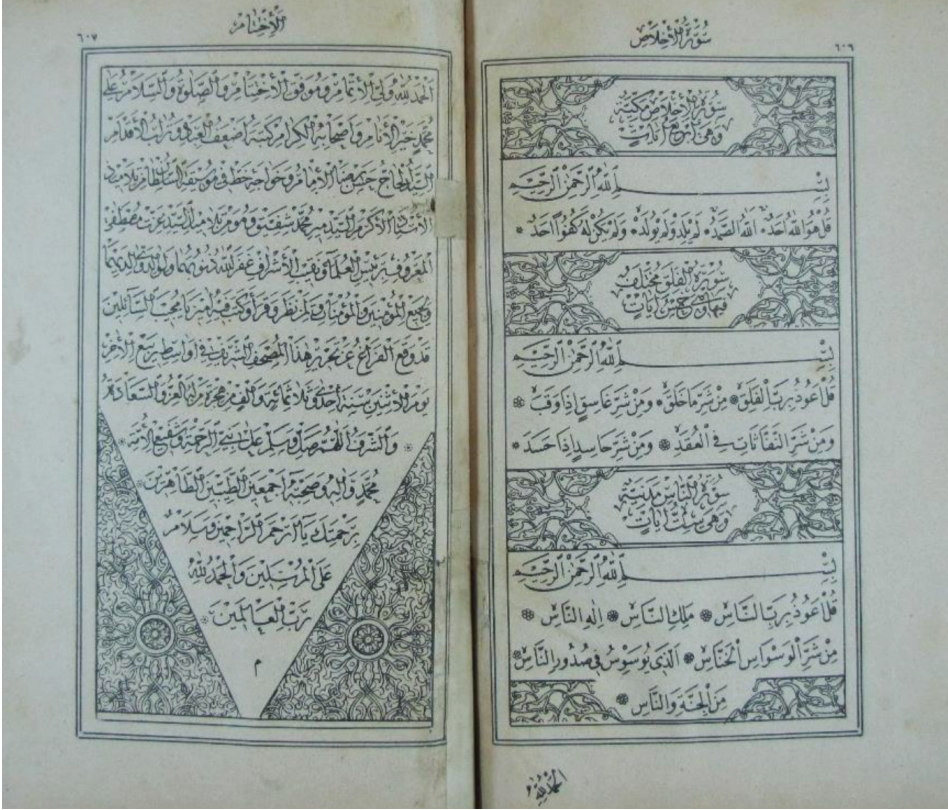 ٦٠٦
سورة الاخلاص
سورة الاخلاص مكية
وهي اربع ايات
بسم الله الرحمن الرحيم
قل هو الله احد الله الصمد لم يلد ولم يولد ولم يكن له كفوا احد
سورة الفلق مختلف
فيها وهي خمس ايات
بسم الله الرحمن الرحيم
قل اعوذ برب الفلق من شر ما خلق ومن شر غاسق اذا وقب
ومن شر النفاثات في العقد ومن شر حاسد اذا حسد
سورة الناس مدنية
وهي ست ايات
بسم الله الرحمن الرحيم
قل اعوذ برب الناس ملك الناس اله الناس
من شر الوسواس الخناس الذي يوسوس في صدور الناس
من الجنة والناس
الحمد لله
الاختتام
٦٠٧
الحمد لله ولي الاتمام وموفق الاختتام والصلوة والسلام على
محمد خير الانام واصحابه الكرام كتبه اضعف العباد وتراب الاقدام
السيد الحاج حسن رضا الامام وخواجه خط في
الاكرم السيد محمد شفيق وهو من تلاميذ السيد عزت مصطفى
المعروف برئيس العلماء ونقيب الاشراف غفر الله ذنوبهما
ولجميع المؤمنين والمؤمنات ولمن نظر وقرأ وكتب فيه امين يا مجيب السائلين
قد وقع الفراغ عن تحرير هذا المصحف الشريف في اواسط ربيع الاخر
يوم الاثنين سنة احدى وثلاثمائة والف من هجرة من له العز والسعادة
والشرف اللهم صل وسلم على نبي الرحمة وشفيع الامة
محمد واله وصحبه اجمعين الطيبين الطاهرين
برحمتك يا ارحم الراحمين وسلام
على المرسلين والحمد لله
رب العالمين
م